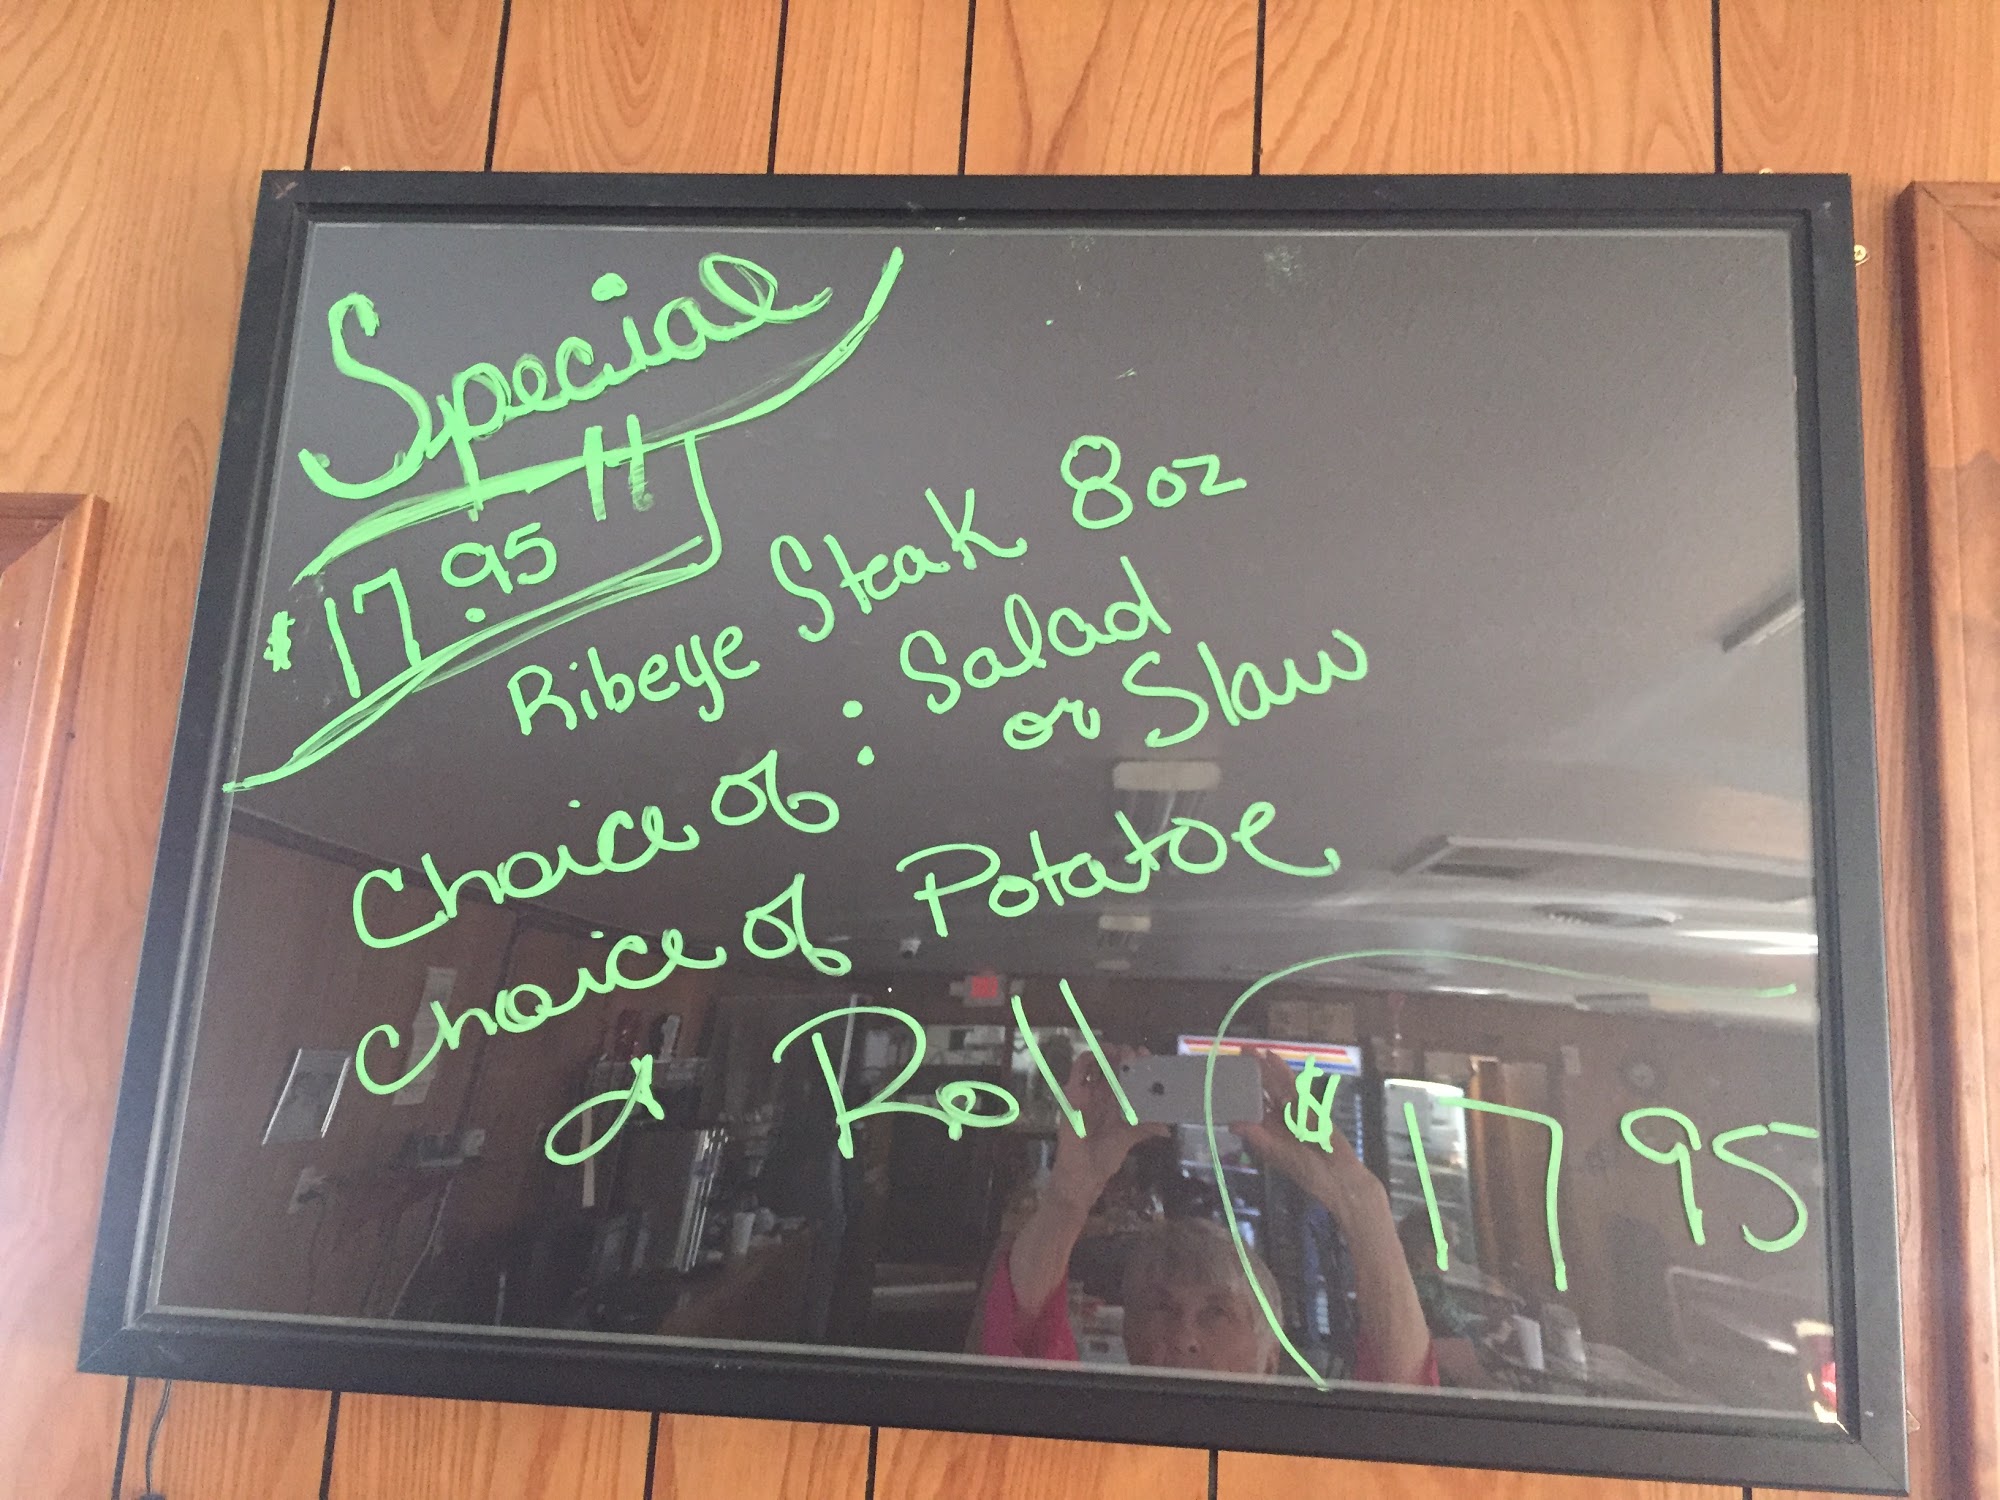 Special
$17.95
Ribeye Steak 8oz
Choice of : Salad
or Slaw
Choice of Potatoe
& Roll
$17 95